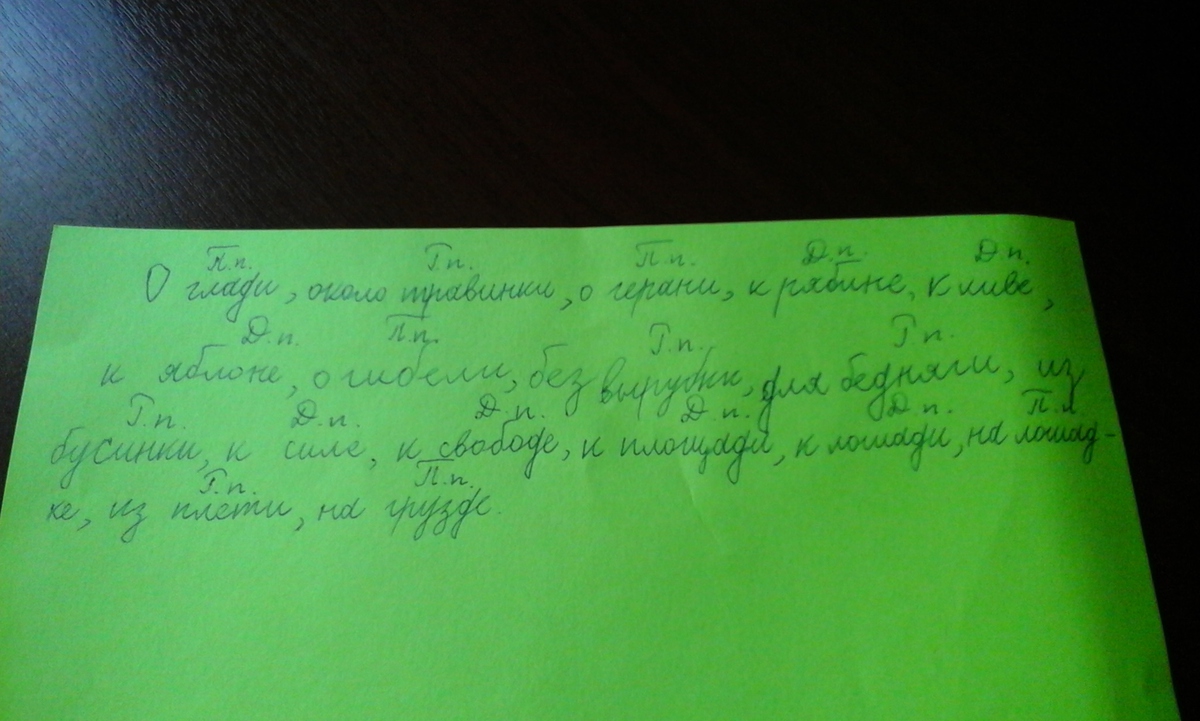 П.п. Г.п. П.п. Д.п. Д.п.
О глади, около травинки, о герани, к рябине, к иве,
Д.п. П.п. Г.п. Г.п.
к яблоне, о гибели, без вырубки, для бедняги, из
Г.п. Д.п. Д.п. Д.п. Д.п. П.п.
бусинки, к силе, к свободе, к площади, к лошади, на лошад-
Г.п. П.п.
ке, из плети, на грузде.